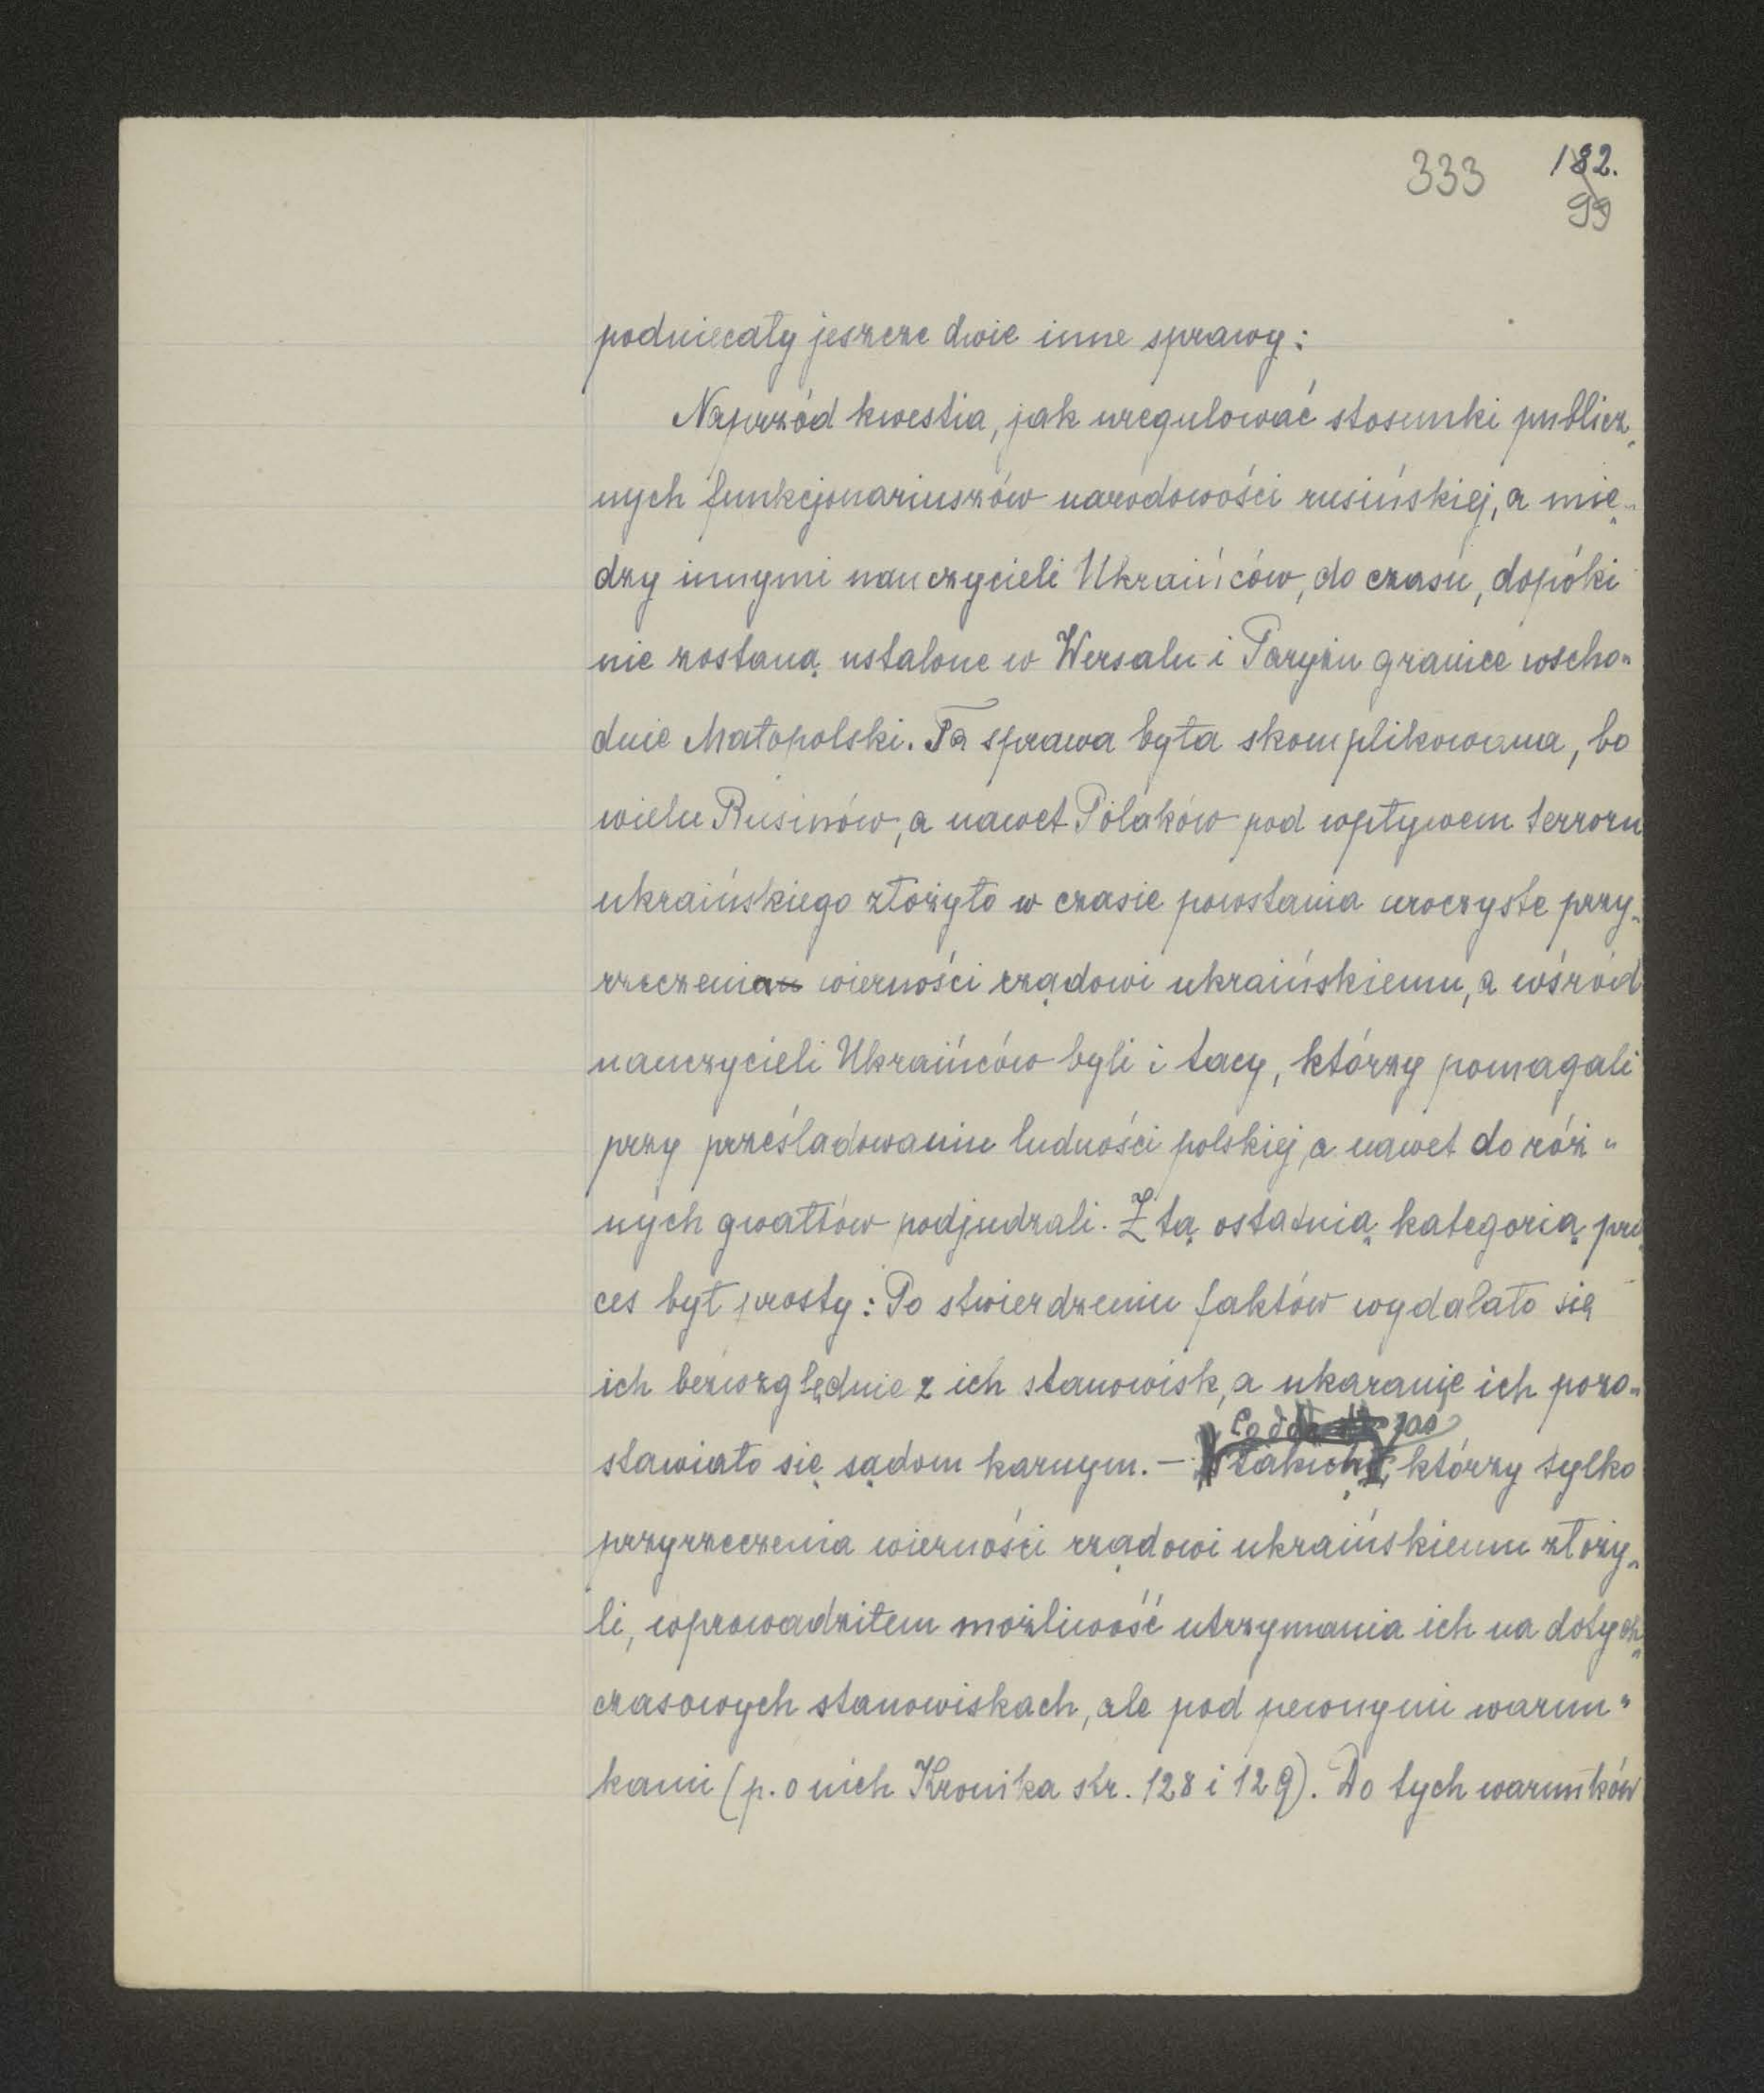 333 182.
99
podniecały jeszcze dwie inne sprawy:
Naprzód kwestia, jak uregulować stosunki publicz„
nych funkcjonariuszów narodowości rusińskiej, a mię„
dzy innymi nauczycieli Ukraińców, do czasu, dopóki
nie zostaną ustalone w Wersalu i Paryżu granice wscho„
dnie Małopolski. Ta sprawa była skomplikowana, bo
wielu Rusinów, a nawet Polaków pod wpływem terroru
ukraińskiego złożyło w czasie powstania uroczyste przy„
rzeczenia wierności rządowi ukraińskiemu, a wśród
nauczycieli Ukraińców byli i tacy, którzy pomagali
przy prześladowaniu ludności polskiej, a nawet do róż„
nych gwałtów podjudzali. Z tą ostatnią kategorią pro„
ces był prosty: Po stwierdzeniu faktów wydalało się
ich bezwzględnie z ich stanowisk, a ukaranie ich pozo„
stawiało się sądom karnym. – takich, którzy tylko
przyrzeczenia wierności rządowi ukraińskiemu złoży„
li, wprowadziłem możliwość utrzymania ich na dotych„
czasowych stanowiskach, ale pod pewnymi warun„
kami (p. o nich Kronika str. 128 i 129). Do tych warunków